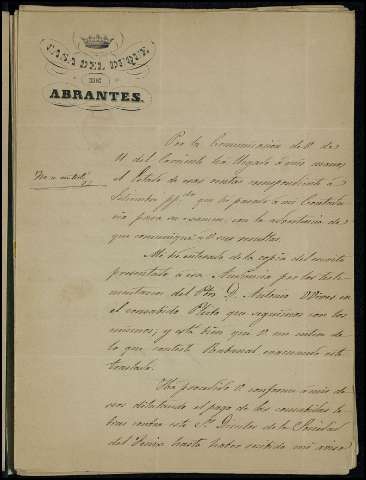 CASA DEL DUQUE
DE
ABRANTES.
Por la Comunicacion de V. de
11 del Corriente ha llegado á mis manos
el Estado de esas rentas correspondiente á
Setiembre pp.do que he pasado á mi Contadu
ria para su examen, con la advertencia de
que comunique á V. sus resultas.
Me he enterado de la copia del escrito
presentado á esa Audiencia por los testa-
mentarios del D. Antonio Vives en
el consabido Pleito que seguimos con los
mismos; y está bien que V. me entere de
lo que conteste evacuando este
traslado.
Ha procedido V. conforme á mis de
seos dilatando el pago de las consabidas le
tras contra este Sr. Director de la Sociedad
del hasta haber recibido mi aviso